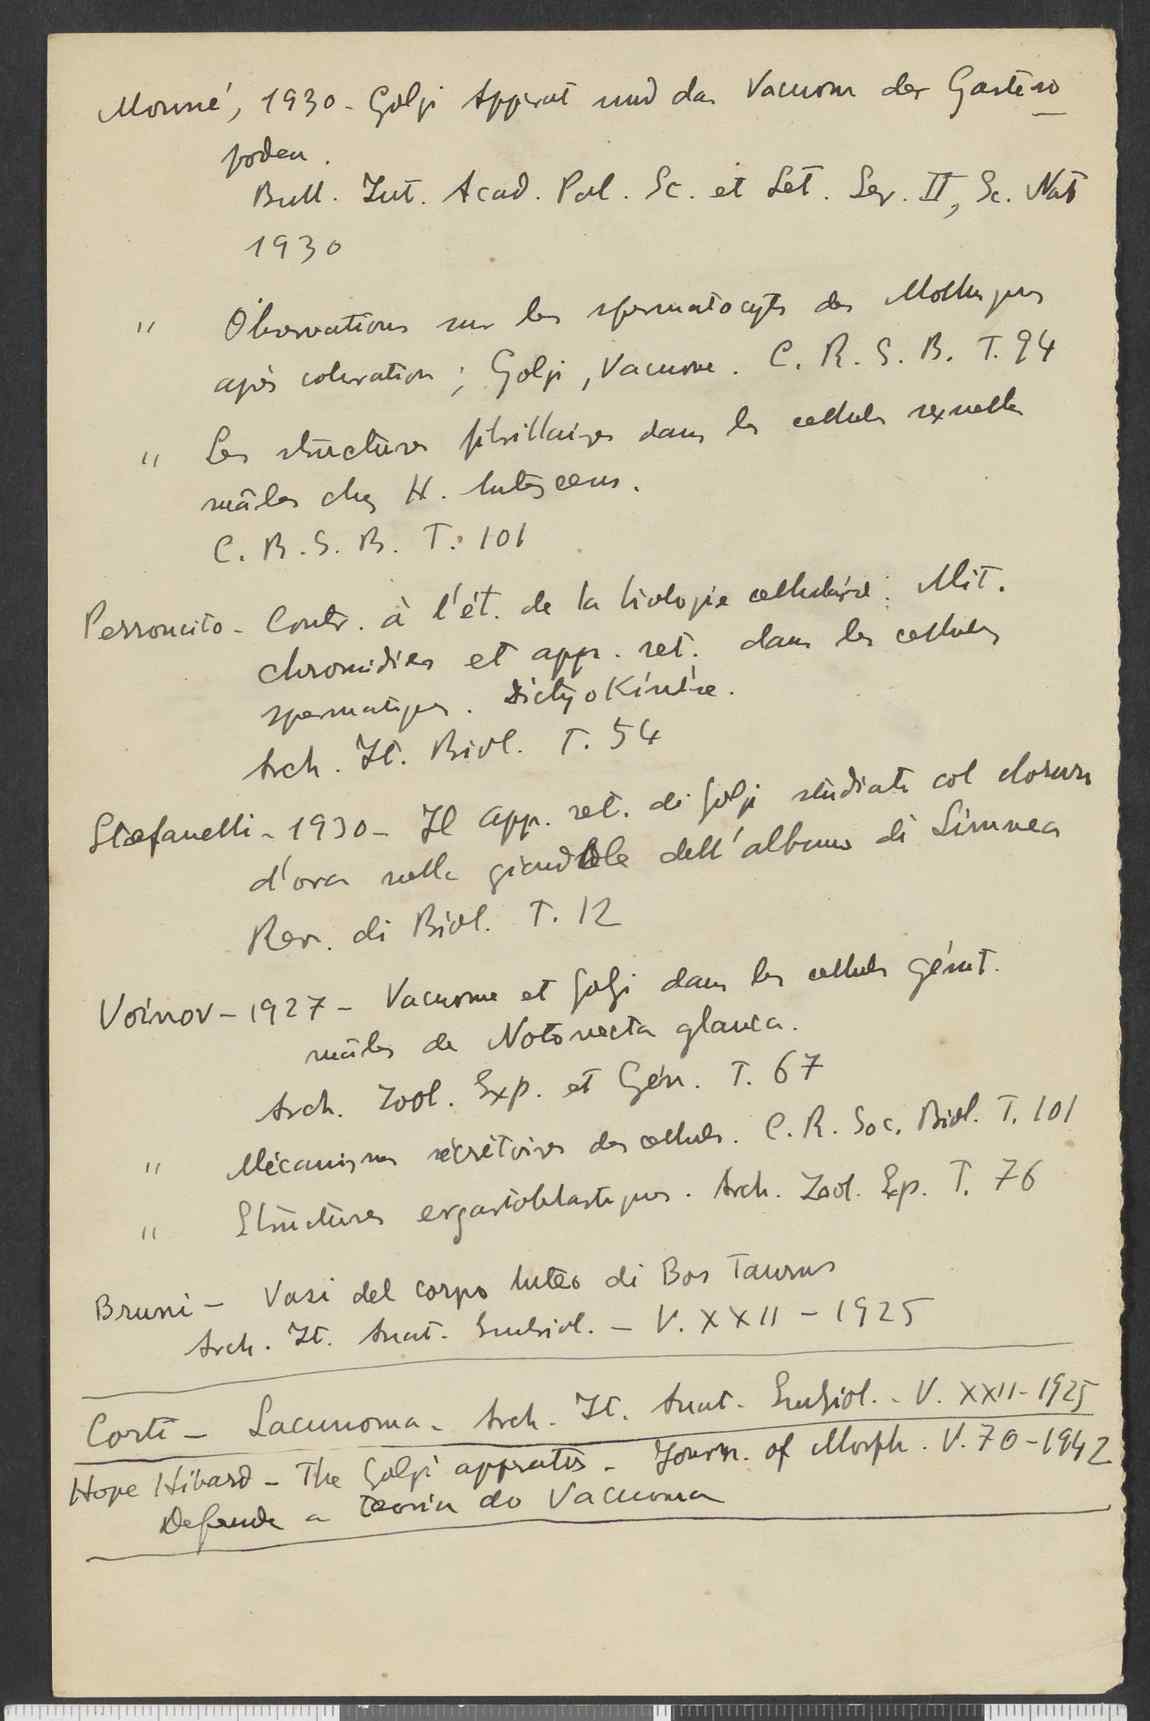 Monné, 1930 - Golgi Apparat und das Vacuom der Gastero
poden.
Bull. Int. Acad. Pol. Sc. et Let. Ser. II, Sc. Nat
1930
" Observations sur les spermatocytes des Mollusques
après coloration ; Golgi, Vacuome. C. R. S. B. T. 94
" Les structures fibrillaires dans les cellules sexuelles
mâles chez H. lutescens.
C. R. S. B. T. 101
Perroncito - Contr. à l'ét. de la biologie cellulaire : Mit.
chromidies et app. ret. dans les cellules
spermatiques. Dictyokinèse.
Arch. It. Biol. T. 54
Stefanelli - 1930 - Il app. ret. di Golgi studiato col cloruro
d'oro nelle giandole dell'albume di Limnea
Rev. di Biol. T. 12
Voinov - 1927 - Vacuome et Golgi dans les cellules génit.
mâles de Notonecta glauca.
Arch. Zool. Exp. et Gén. T. 67
" Mécanismes sécrétoires des cellules. C. R. Soc. Biol. T. 101
" Structures ergastoblastiques. Arch. Zool. Exp. T. 76
Bruni - Vasi del corpo luteo di Bos Taurus
Arch. It. Anat. Embriol. - V. XXII - 1925
Corti - Lacunoma - Arch. It. Anat. Embriol. - V. XXII - 1925
Hope Hibard - The Golgi appratus - Journ. of Morph. V. 70 - 1942
Defende a teoria do Vacuoma